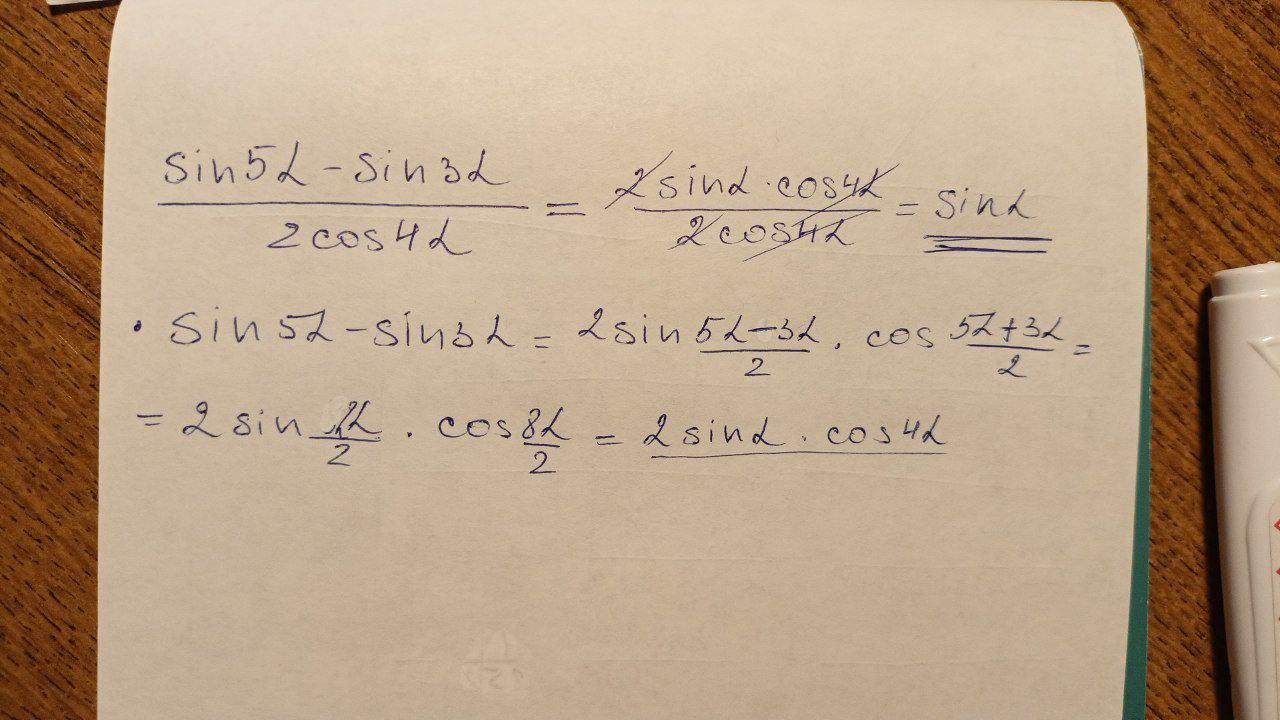 (sin5α - sin3α)/(2cos4α) = (2sinα · cos4α)/(2cos4α) = sinα
· sin5α - sin3α = 2sin (5α-3α)/2 · cos (5α+3α)/2 =
= 2sin 2α/2 · cos 8α/2 = 2sinα · cos4α